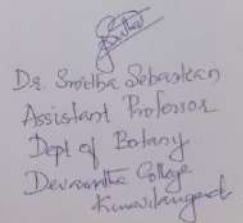 Dr. Smitha Sebastian
Assistant Professor
Dept of Botany
Devamatha College
Kuravilangad